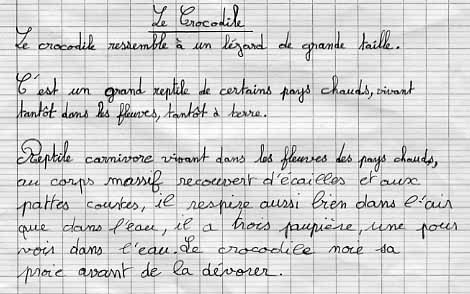 Le Crocodile
Le crocodile ressemble à un lézard de grande taille.
C'est un grand reptile de certains pays chauds, vivant
tantôt dans les fleuves, tantôt à terre.
Reptile carnivore vivant dans les fleuves des pays chauds,
au corps massif recouvert d'écailles et aux
pattes courtes, il respire aussi bien dans l'air
que dans l'eau, il a trois paupière, une pour
voir dans l'eau. Le crocodile noie sa
proie avant de la dévorer.